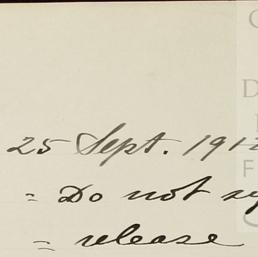 25 Sept. 191
= Do not
= release